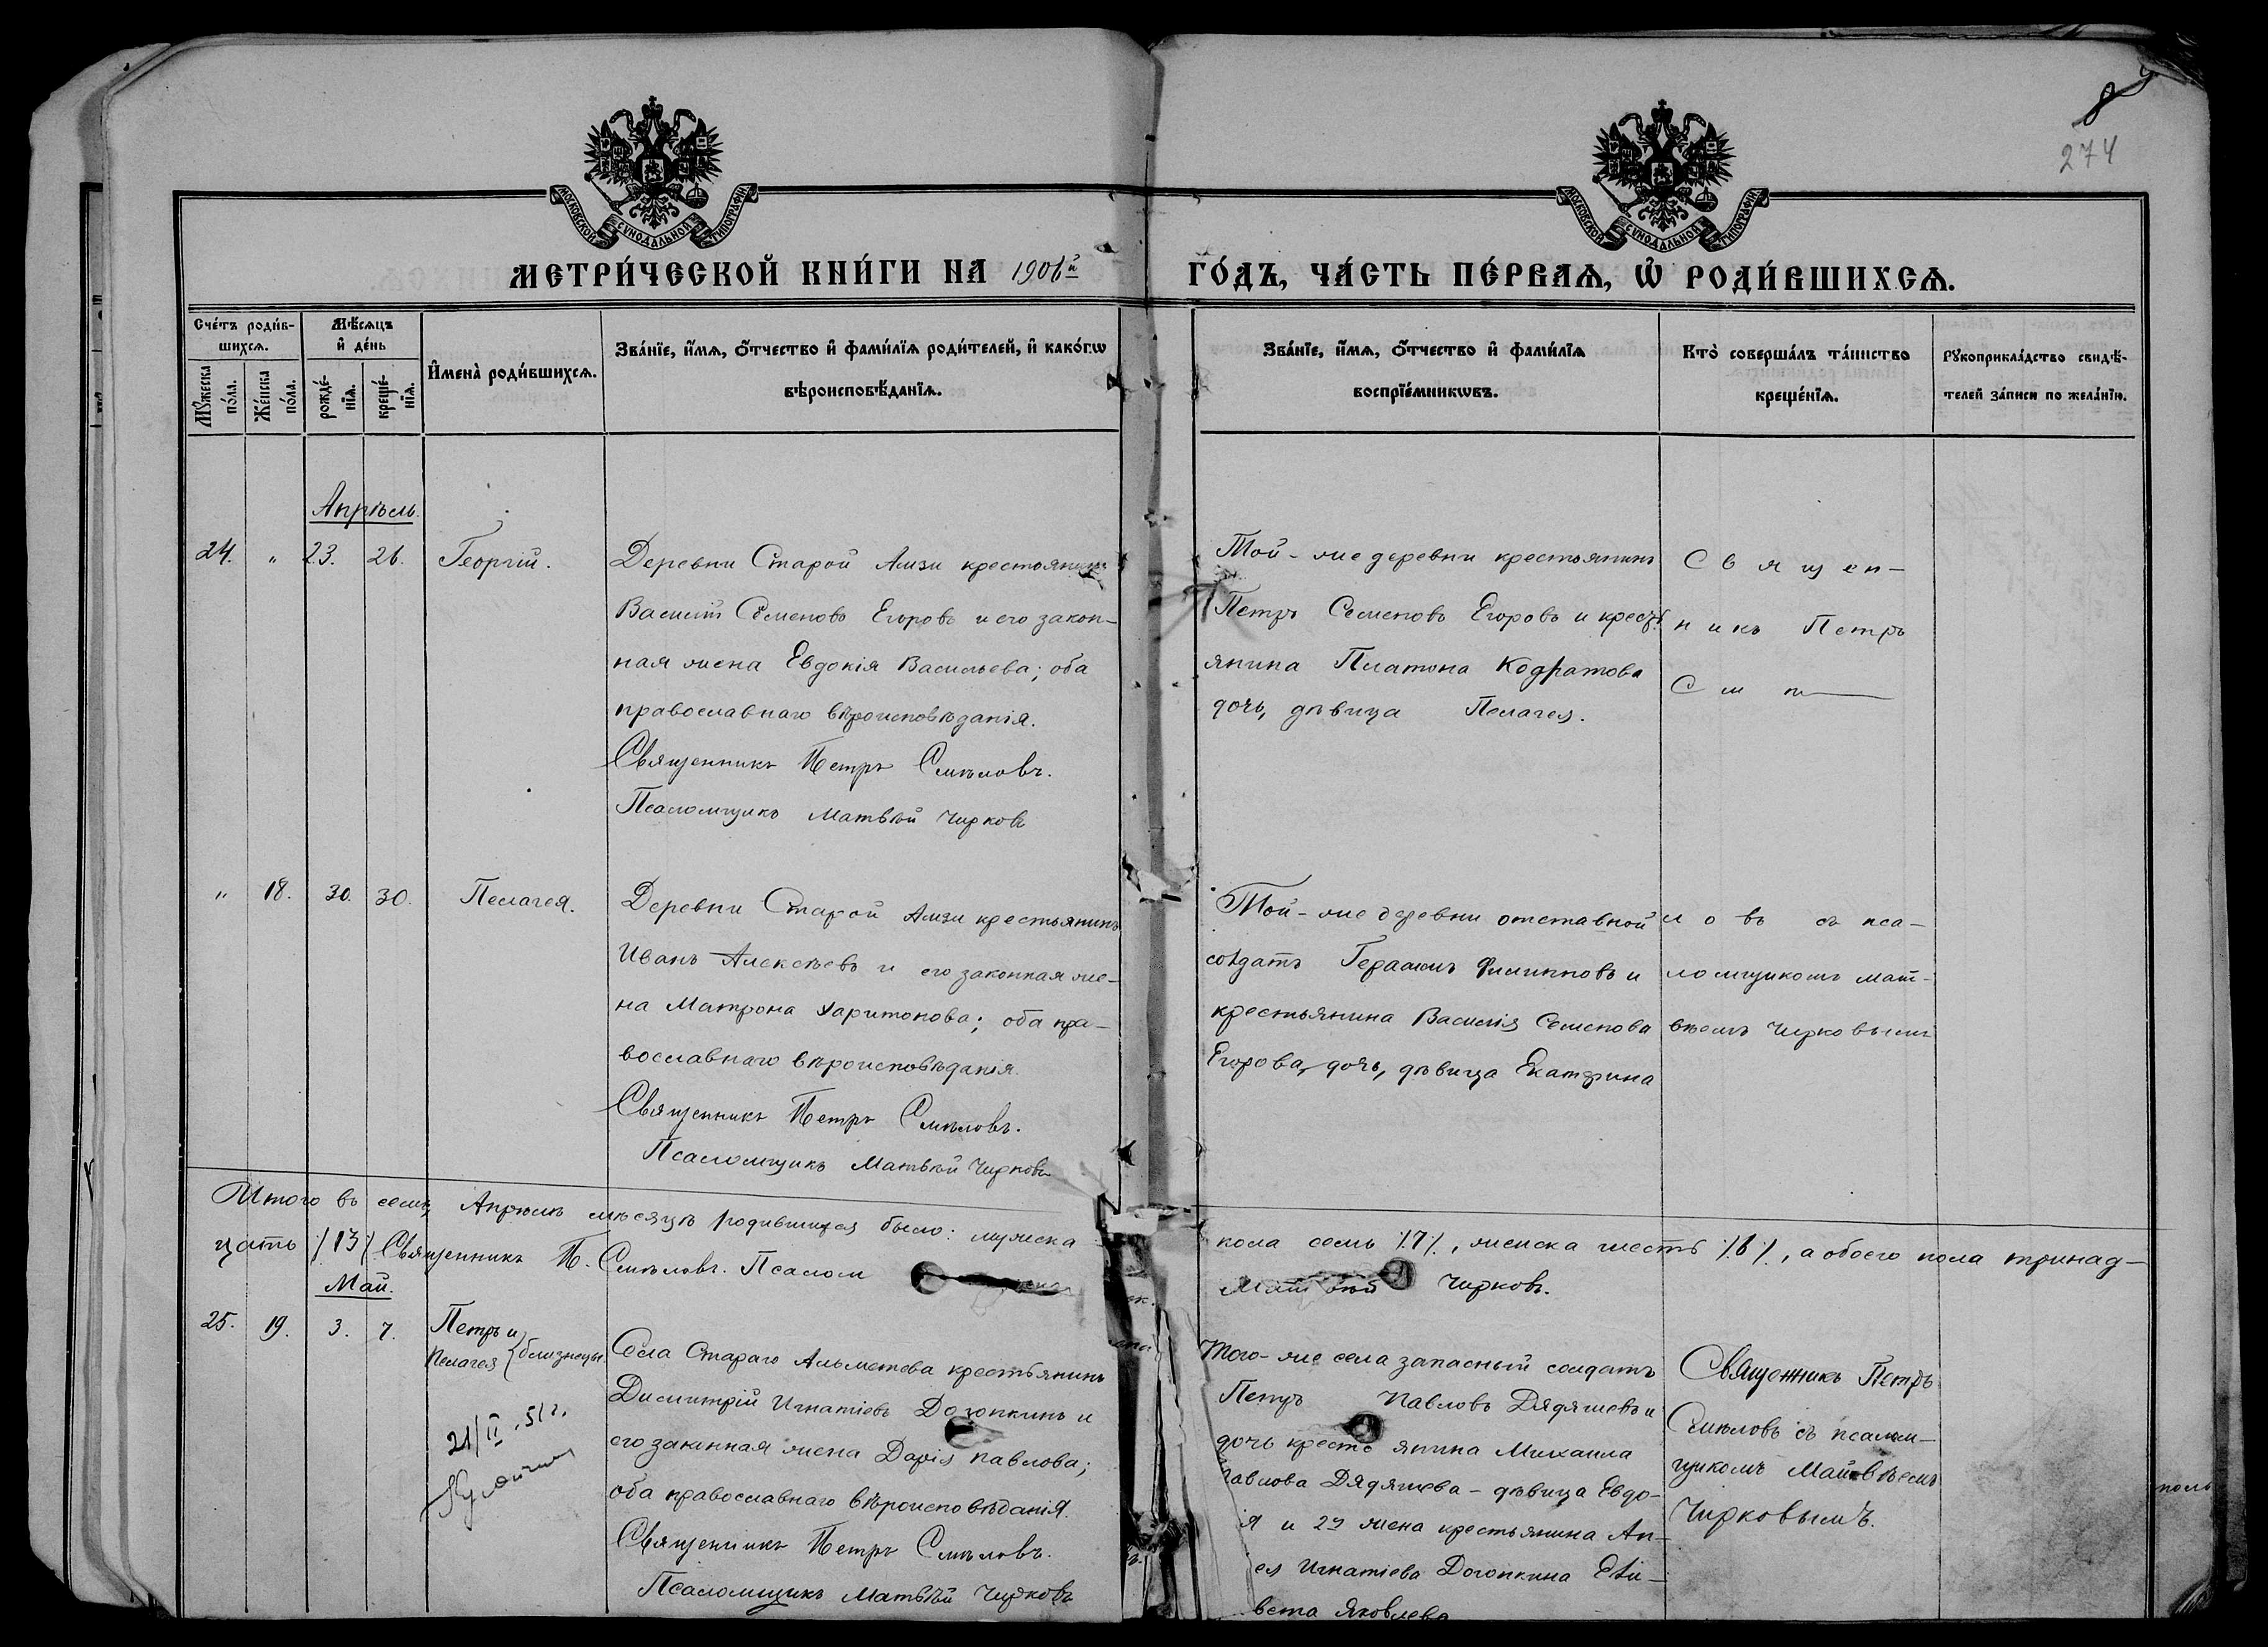 8
274
МОСКОВСКОЙ СѴНОДАЛЬНОЙ ТИПОГРАФІИ
МОСКОВСКОЙ СѴНОДАЛЬНОЙ ТИПОГРАФІИ
МЕТРИ́ЧЕСКОЙ КНИ́ГИ НА 1906й
ГО́ДЪ, ЧА́СТЬ ПЕ́РВАѦ, Ѡ҆ РОДИ́ВШИХСѦ.
Сче́тъ роди́в-
шихсѧ.
Мѣ́сѧцъ
и҆ де́нь
Мꙋ́жеска
по́ла.
Же́нска
по́ла.
рожде́-
нїѧ.
креще́-
нїѧ.
И҆мена̀ роди́вшихсѧ.
Зва́нїе, и҆́мѧ, ѻ҆́тчество и҆ фами́лїѧ роди́телей, и҆ како́гѡ
вѣроисповѣ́данїѧ.
Зва́нїе, и҆́мѧ, ѻ҆́тчество и҆ фами́лїѧ
воспрїе́мникѡвъ.
Кто̀ соверша́лъ та́инство
креще́нїѧ.
Рꙋкоприкла́дство свидѣ́-
телей за́писи по жела́нїю.
Апрѣль.
24. " 23. 26. Георгій.
Деревни Старой Амзи крестьянинъ
Василій Семеновъ Егоровъ и его закон-
ная жена Евдокія Васильева; оба
православнаго вѣроисповѣданія.
Священникъ Петръ Смѣловъ.
Псаломщикъ Матвѣй Чирковъ
Той-же деревни крестьянинъ
Петръ Семеновъ Егоровъ и крест
янина Платона Кодратова
дочь, дѣвица Пелагея.
Священ-
никъ Петръ
Смѣ
" 18. 30. 30. Пелагея.
Деревни Старой Амзи крестьянинъ
Иванъ Алексѣевъ и его законная же-
на Матрона Харитонова; оба пра-
вославнаго вѣроисповѣданія.
Священникъ Петръ Смѣловъ.
Псаломщикъ Матвѣй Чирковъ
Той-же деревни отставной
солдатъ Герасимъ Филипповъ и
крестьянина Василія Семенова
Егорова, дочь, дѣвица Екатерина
ловъ съ пса-
ломщикомъ Мат-
вѣемъ Чирковымъ
Итого въ семъ Апрѣлѣ мѣсяцѣ родившихся было: мужска
пола семь /7/, женска шесть /6/, а обоего пола тринад-
цать /13/ Священникъ П. Смѣловъ. Псалом
Матвѣй Чирковъ.
Май.
25. 19. 3. 7. Петръ и
Пелагея } близнецы.
21/II.51г.
Села Стараго Альметева крестьянинъ
Димитрій Игнатіевъ Догонкинъ и
его законная жена Дарія Павлова;
оба православнаго вѣроисповѣданія.
Священникъ Петръ Смѣловъ.
Псаломщикъ Матвѣй Чирковъ
Того-же села запасный солдатъ
Петръ Павловъ Дядяшевъ и
дочь крестьянина Михаила
Павлова Дядяшева - дѣвица Евдо-
я и 2я жена крестьянина Ан-
ея Игнатіева Догонкина Ели-
вета Яковлева
Священникъ Петръ
Смѣловъ съ псалом-
щикомъ Матвѣемъ
Чирковымъ.
поль